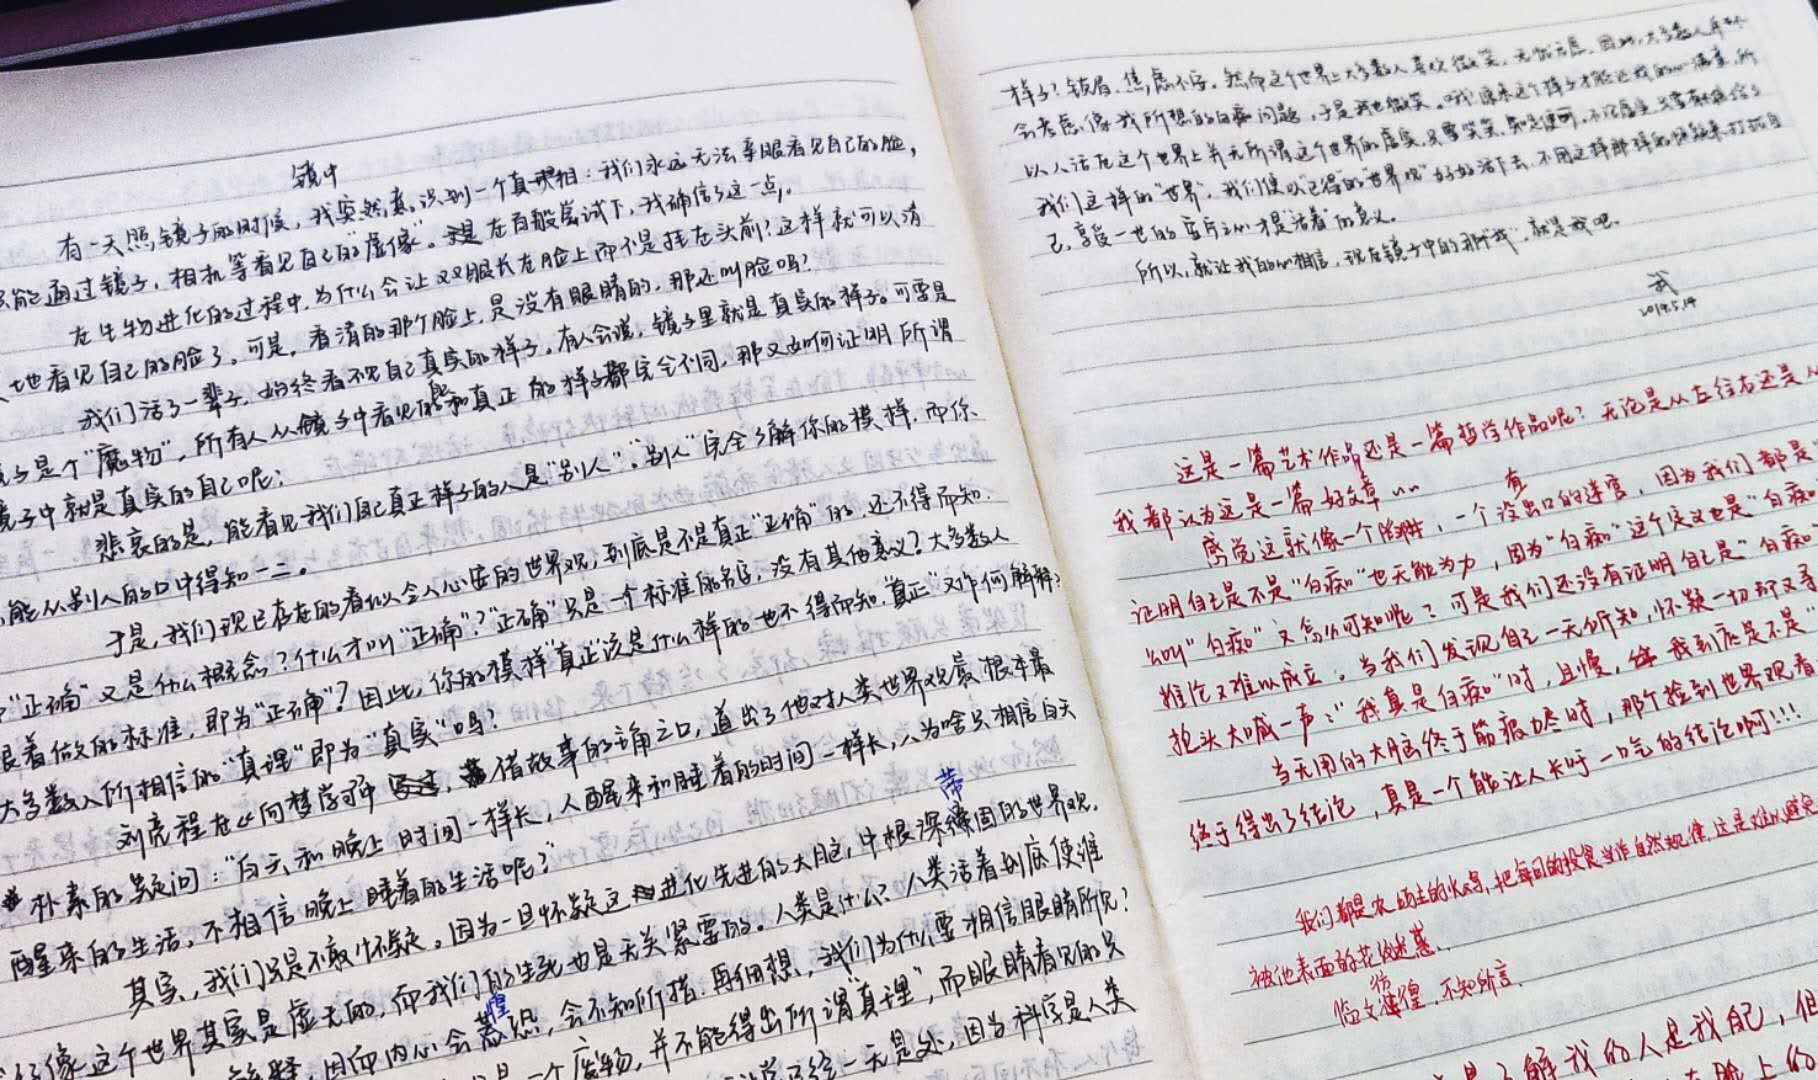 镜中
有一天照镜子的时候，我突然意识到一个真相：我们永远无法亲眼看见自己的脸，
只能通过镜子，相机等看见自己的“虚像”。于是在百般尝试下，我确信了这一点。
在生物进化的过程中，为什么会让双眼长在脸上而不是挂在头前？这样就可以清
地看见自己的脸了。可是，看清的那个脸上，是没有眼睛的，那还叫脸吗？
我们活了一辈子，始终看不见自己真实的样子。有人会说，镜子里就是真实的样子。可要是
镜子是个“魔物”，所有人从镜子中看见的和真正的样子都完全不同，那又如何证明所谓
镜子中就是真实的自己呢；
悲哀的是，能看见我们自己真正样子的人是“别人”。“别人”完全了解你的模样，而你
只能从别人的口中得知一二。
于是，我们现已存在的看似令人心安的世界观，到底是不是真正“正确”的，还不得而知，
“正确”又是什么概念？什么才叫“正确”？“正确”只是一个标准的名字，没有其他意义？大多数人
跟着做的标准，即为“正确”？因此，你的模样“真正”该是什么样的也不得而知，“真正”又作何解释？
大多数人所相信的“真理”即为“真实”吗？
刘亮程在《一向梦学习》中，借故事的主角之口，道出了他对人类世界观最根本最
朴素的疑问：“白天和晚上时间一样长，人醒来和睡着的时间一样长，人为啥只相信白天
醒来的生活，不相信晚上睡着的生活呢？”
其实，我们只是不敢怀疑。因为一旦怀疑这进化先进的大脑，中根深蒂固的世界观，
好像这个世界其实是虚无的，而我们的生死也是无关紧要的。人类是什么？人类活着到底使谁
解释，因而内心会惶恐，会不知所措。再细想，我们为什么要相信眼睛所见？
一个废物，并不能得出所谓“真理”，而眼睛看见的只
一无是处，因为科学是人类
样子？锁眉，焦虑不安。然而这个世界上大多数人喜欢微笑，无忧无虑，因此，大多数人并不
会考虑像我所想的白痴问题，于是我也微笑。哦！原来这个样子才能让我的心满意，所
以人活在这个世界上并无所谓这个世界的虚实，只要笑笑
我们这样的“世界”，我们便以“已得”的“世界观”好好活下去，不用这样那样的
己，享受一世的安乐才是“活着”的意义。
所以，就让我的心相信，现在镜子中的那“我”，就是我吧。
2014.5.14
这是一篇艺术作品还是一篇哲学作品呢？无论是从左往右还是从
我都认为这是一篇好文章～
有
感觉这就像一个陷阱，一个没出口的迷宫，因为我们都是“
证明自己是不是“白痴”也无能为力，因为“白痴”这个定义也是“白痴
么叫“白痴”又怎么可知呢？可是我们还没有证明自己是“白痴
推论又难以成立。当我们发现自己一无所知，怀疑一切却又寻
抱头大喊一声：“我真是白痴”时，且慢，我到底是不是“
当无用的大脑终于筋疲力尽时，那个捡到世界观看
终于得出了结论，真是一个能让人长吁一口气的结论啊！！！
我们都是农场主的火鸡，把每日的投食当作自然规律，这是难以避免
被他表面的花纹迷惑..
临文彷徨，不知所言
了解我的人是我自己，但
脸上的